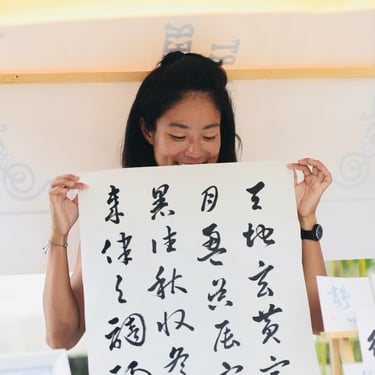 天地玄黃宇
月盈昃辰宿
暑往秋收冬
歲律呂調陽
靜